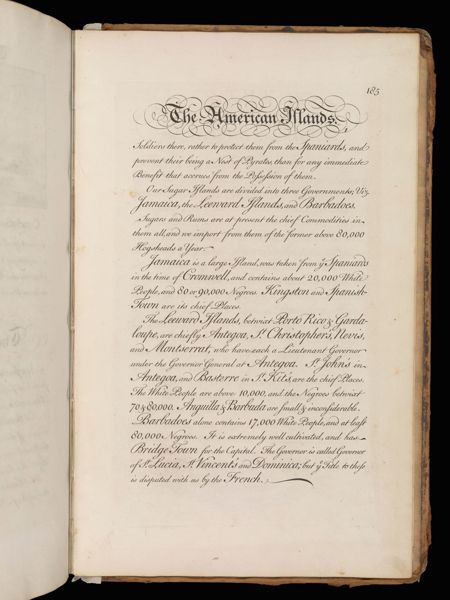 185
The American Islands.
Soldiers there, rather to protect them from the Spaniards, and
prevent their being a Nest of Pyrates, than for any immediate
Benefit that accrues from the Possession of them.
Our Sugar Islands are divided into three Governments, Viz.
Jamaica, the Leeward Islands, and Barbadoes.
Sugars and Rums are at present the chief Commodities in
them all, and we import from them of the former above 80,000
Hogsheads a Year.
Jamaica is a large Island, was taken from yᵉ Spaniards
in the time of Cromwell, and contains about 20,000 White
People, and 80 or 90,000 Negroes. Kingston and Spanish-
Town are its chief Places.
The Leeward Islands, betwixt Porto Rico & Garda-
loupe, are chiefly Antegoa, Sᵗ. Christopher's, Nevis,
and Montserrat, who have each a Lieutenant Governor
under the Governor General at Antegoa. Sᵗ. John's in
Antegoa, and Basterre in Sᵗ. Kits, are the chief Places.
The White People are above 10,000, and the Negroes betwixt
70 & 80,000. Anguilla & Barbuda are small & inconsiderable.
Barbadoes alone contains 17,000 White People, and at least
80,000 Negroes. It is extremely well cultivated, and has
Bridge Town for the Capital. The Governor is called Governor
of Sᵗ. Lucia, Sᵗ. Vincents and Dominica; but yᵉ Title to these
is disputed with us by the French.